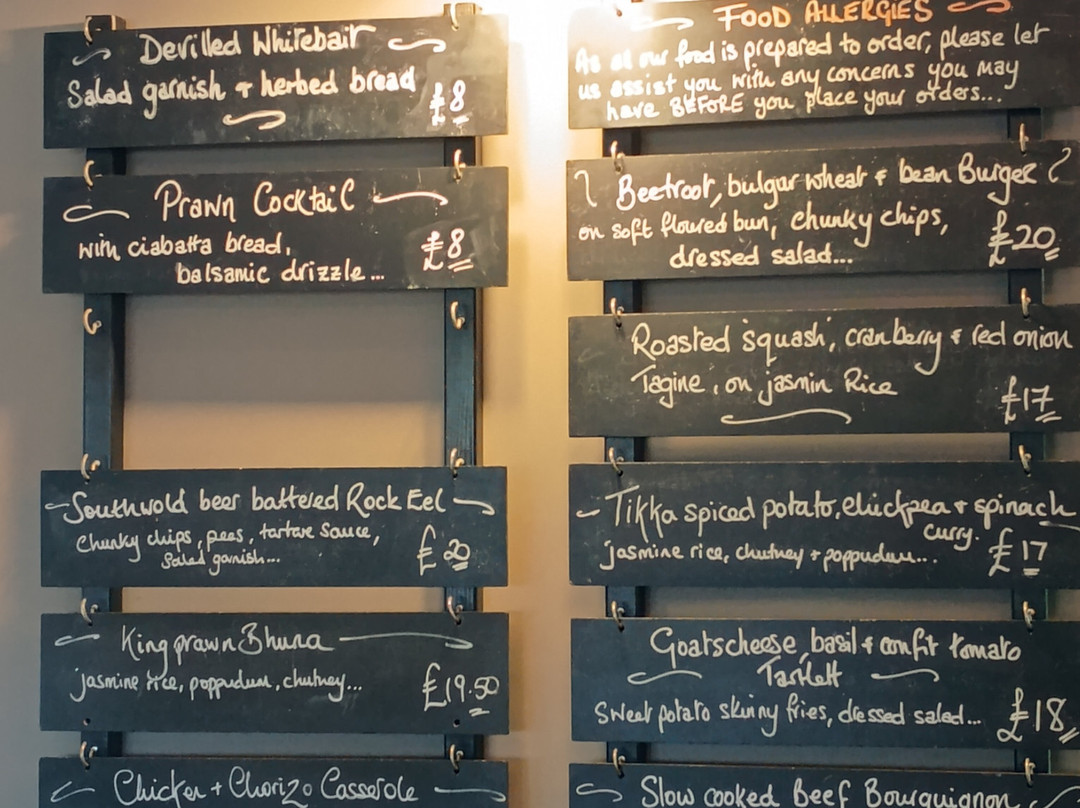 Devilled Whitebait
Salad garnish + herbed bread
£8
Prawn Cocktail
with ciabatta bread,
balsamic drizzle...
£8
Southwold beer battered Rock Eel
Chunky chips, peas, tartare sauce,
Salad garnish...
£20
King prawn Bhuna
jasmine rice, poppudum, chutney...
£19.50
Chicken + Chorizo Casserole
FOOD ALLERGIES
As all our food is prepared to order, please let
us assist you with any concerns you may
have BEFORE you place your orders...
Beetroot, bulgar wheat + bean Burger
on soft floured bun, chunky chips,
dressed salad...
£20
Roasted 'squash', cranberry + red onion
Tagine, on jasmin Rice
£17
Tikka spiced potato, chickpea + spinach
curry.
jasmine rice, chutney + poppudum...
£17
Goatscheese, basil + confit tomato
Tartlett
Sweet potato skinny fries, dressed salad...
£18
Slow cooked Beef Bourguignon